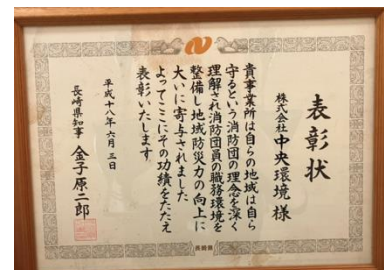 表彰状
株式会社中央環境 様
貴事業所は自らの地域は自ら
守るという消防団の理念を深く
理解され消防団員の職務環境を
整備し地域防災力の向上に
大いに寄与されました
よってここにその功績をたたえ
表彰いたします
平成十八年六月三日
長崎県知事 金子原二郎